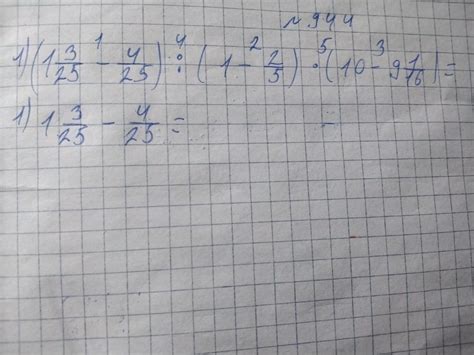 № 944
1) (1 3/25 - 4/25) : (1 - 2/5) · (10 - 9 1/16) =
1) 1 3/25 - 4/25 = =